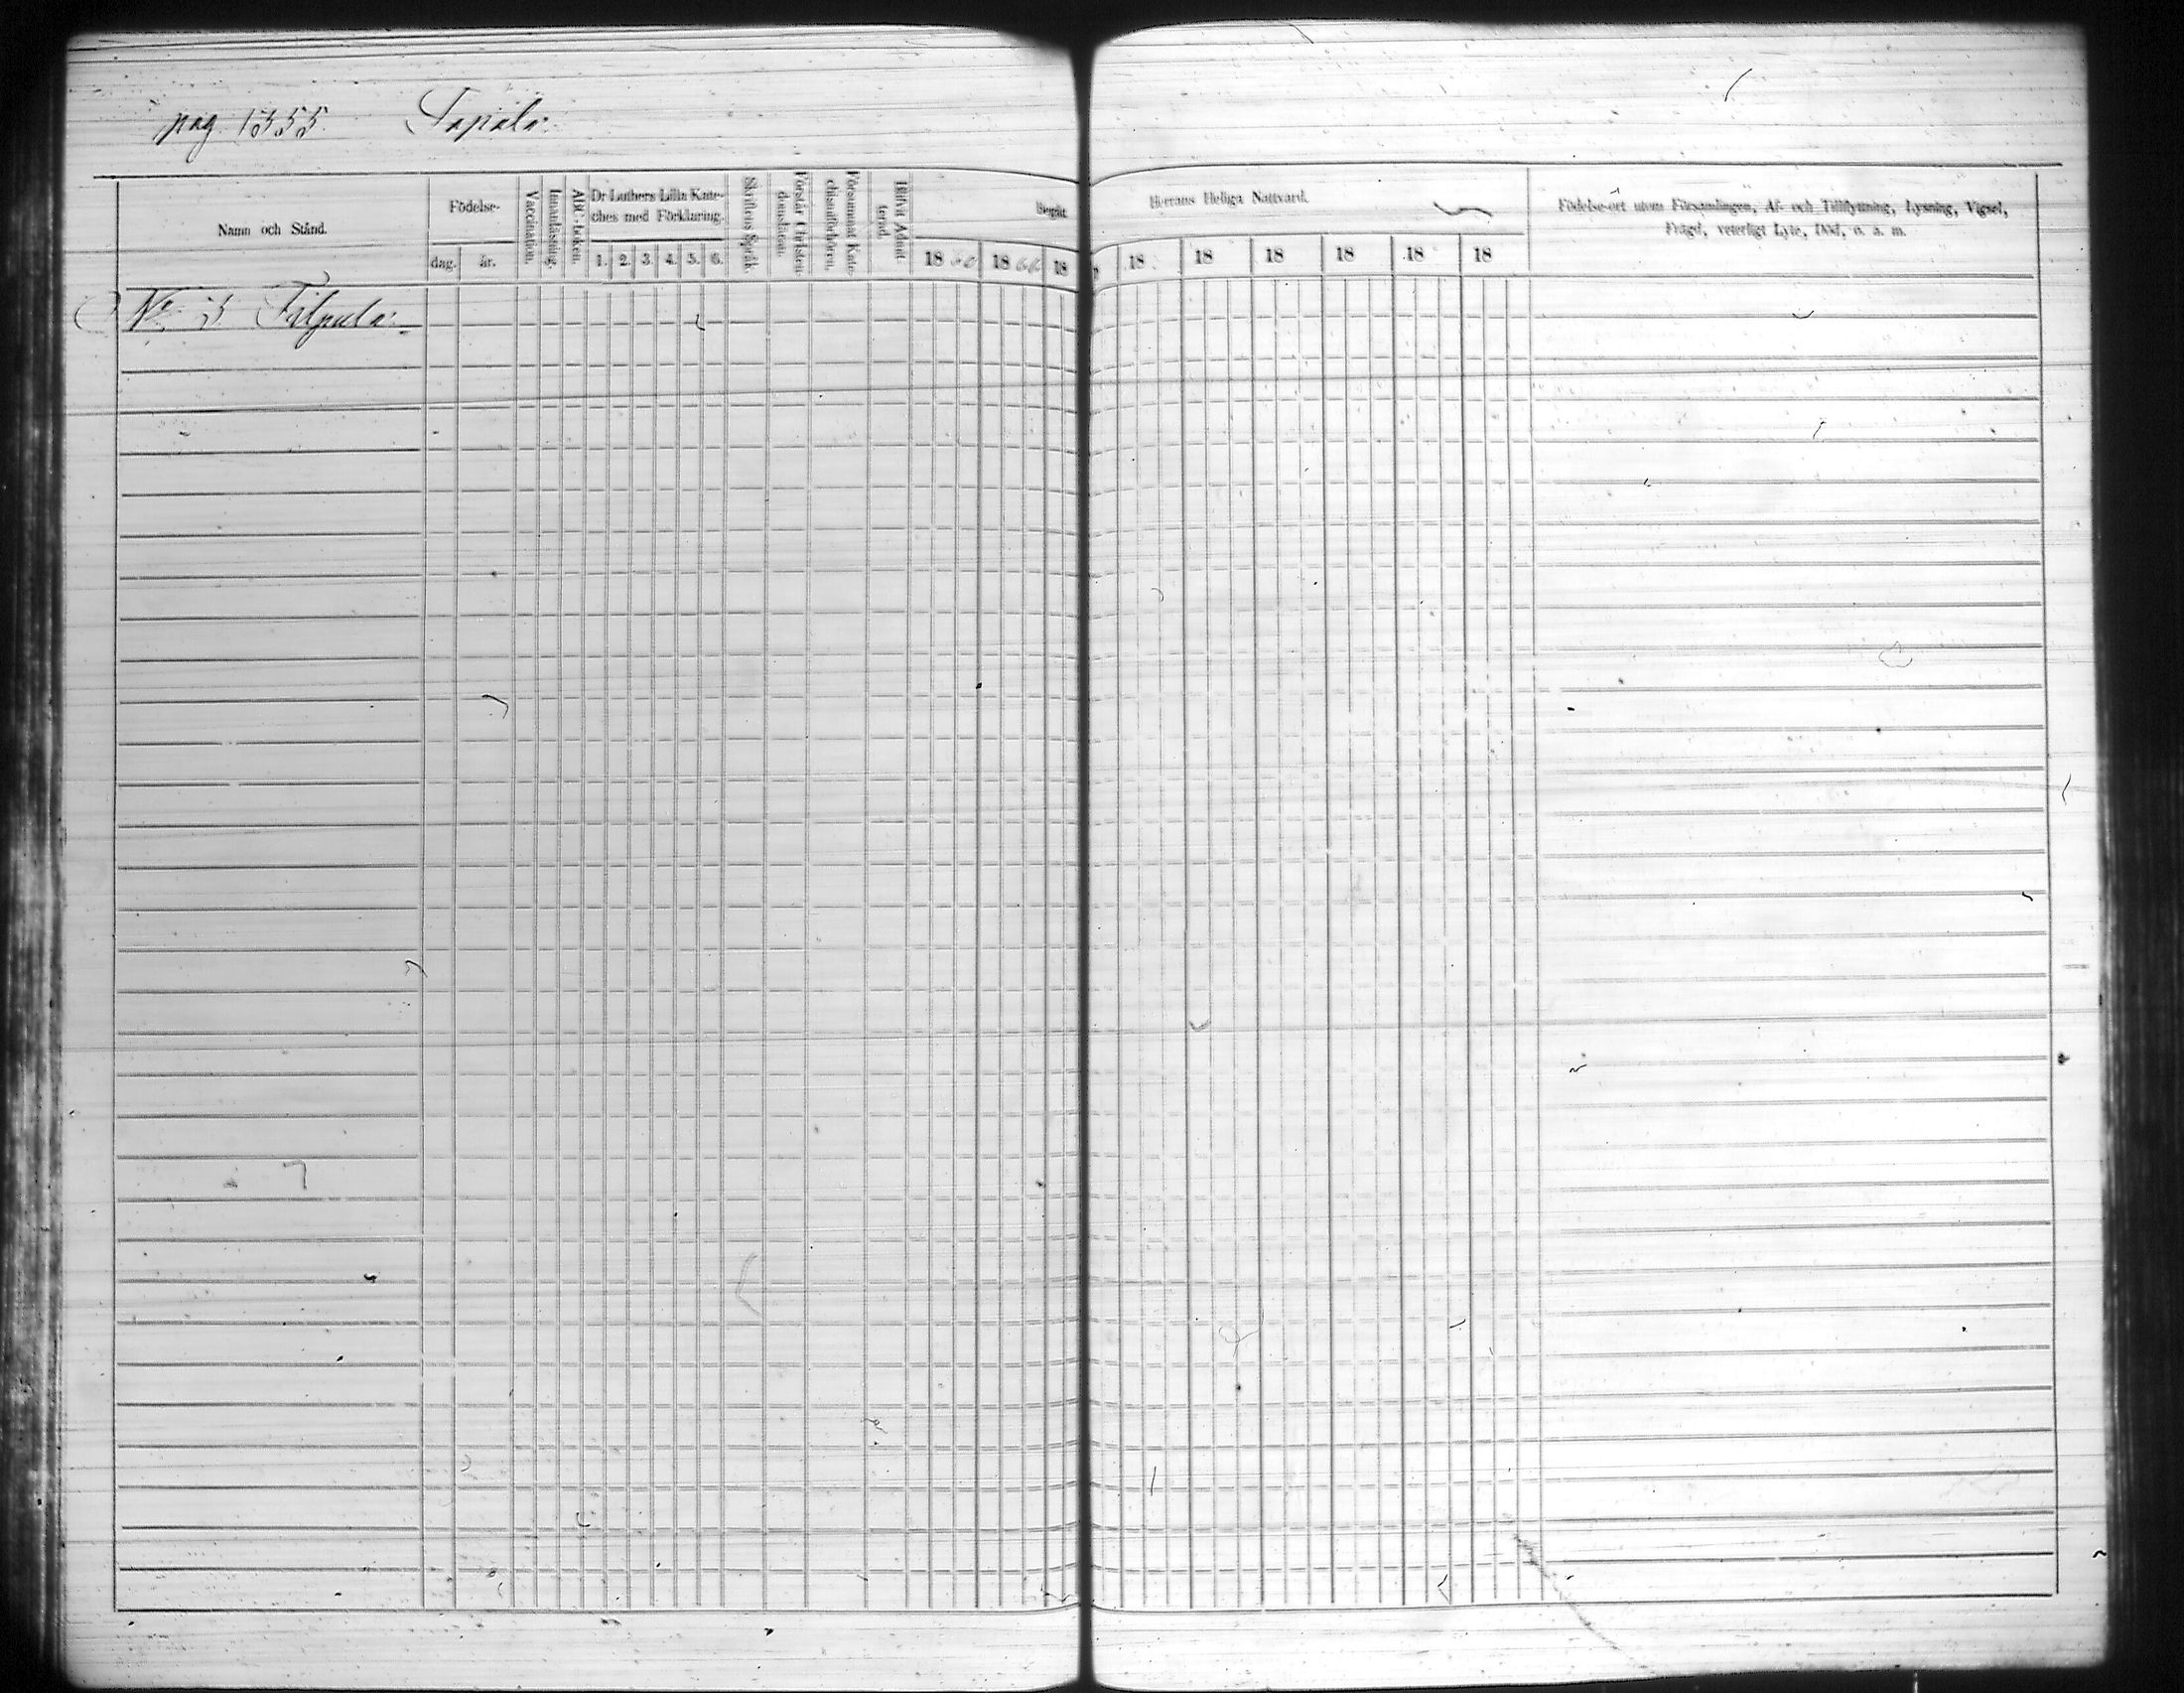 pag. 1355. Topola.
Namn och Stånd.
Födelse-
dag. år.
Vaccination.
Innanläsning.
ABC-boken.
Dr Luthers Lilla Kate-
ches med Förklaring.
1. 2. 3. 4. 5. 6.
Skriftens Språk.
Förstår Christen-
domsläran.
Försummat Kate-
chismiförhören.
Blifvit Admit-
terad.
Begått
Herrans Heliga Nattvard.
18 60 18 18 18 18 18 18 18 18
Födelse-ort utom Församlingen, Af- och Tillflyttning, Lysning, Vigsel,
Frägd, veterligt Lyte, Död, o. s. m.
No 5 Filpula.